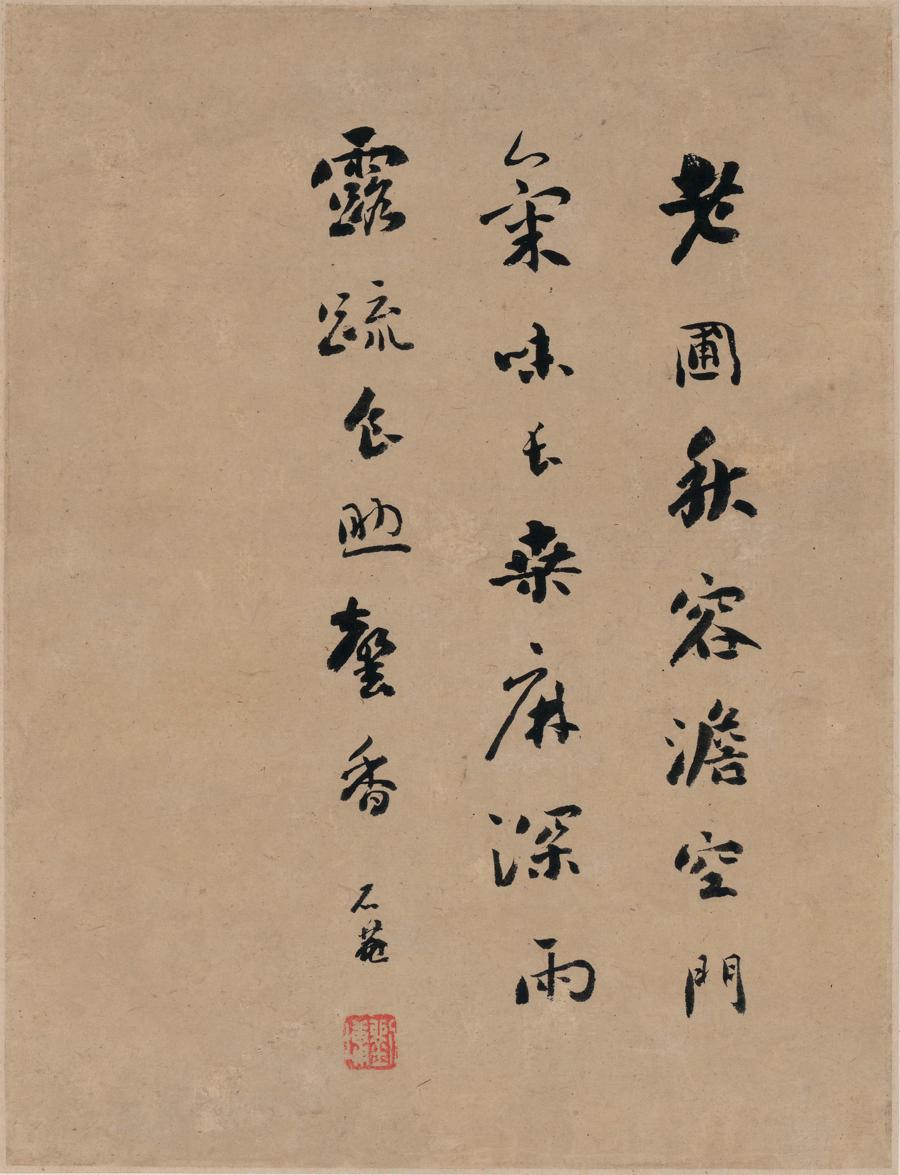 老圃秋容澹空門
氣味長桑麻深雨
露䟽食助馨香
石菴